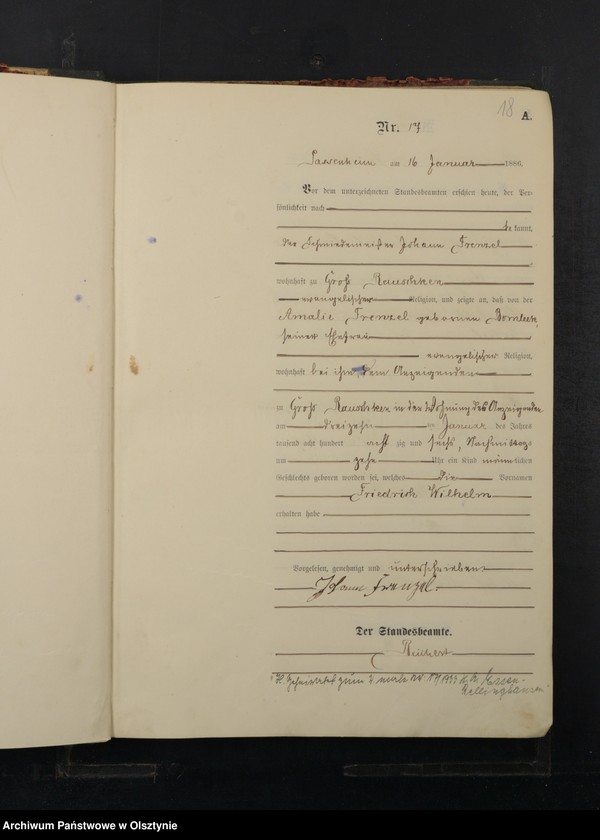 18
A.
Nr. 17
Passenheim am 16 Januar 1886.
Vor dem unterzeichneten Standesbeamten erschien heute, der Per-
sönlichkeit nach
be kannt,
der Schmiedemeister Johann Frenzel
wohnhaft zu Groß Rauschken
evangelischer Religion, und zeigte an, daß von der
Amalie Frenzel gebornen
seiner Ehefrau
evangelischer Religion,
wohnhaft bei ihm, dem Anzeigenden
zu Groß Rauschken in der Wohnung des Anzeigenden
am dreizehn ten Januar des Jahres
tausend acht hundert acht zig und sechs, Nachmittags
um zehn Uhr ein Kind männlichen
Geschlechts geboren worden sei, welches die Vornamen
Friedrich Wilhelm
erhalten habe
Vorgelesen, genehmigt und unterschrieben
Johann Frenzel.
Der Standesbeamte.
Reichert
1933 Essen-
Archiwum Państwowe w Olsztynie